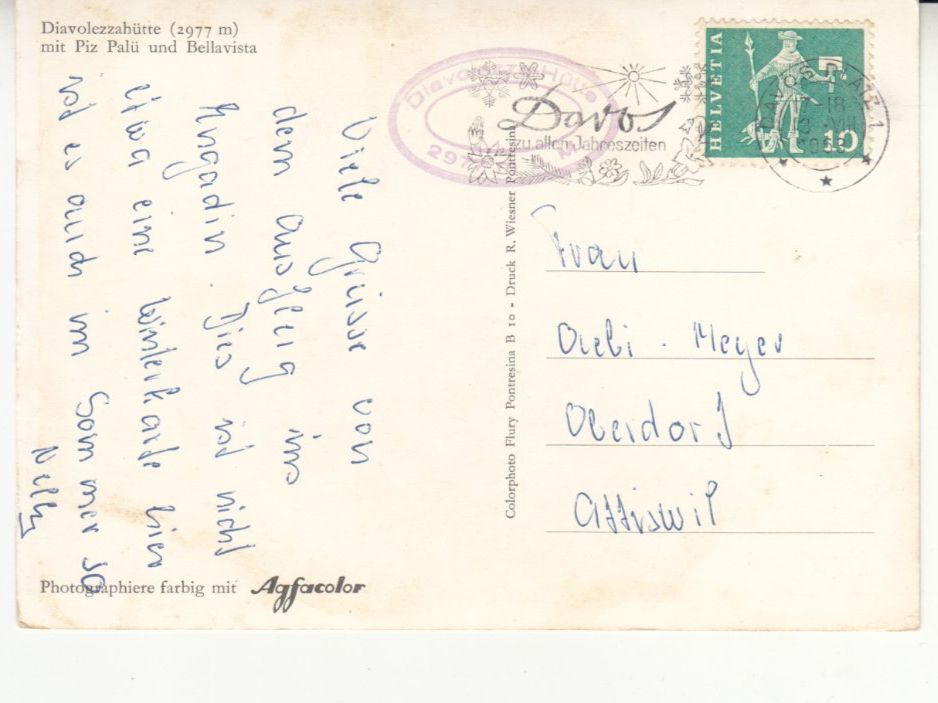 Diavolezzahütte (2977 m)
mit Piz Palü und Bellavista
Viele Grüsse von
dem Ausflug ins
Engadin. Dies ist nicht
etwa eine Winterkarte hier
ist es auch im Sommer so
Nelly
Photographiere farbig mit Agfacolor
Colorphoto Flury Pontresina B 10 - Druck R. Wiesner Pontresina
Diavolezza-Hütte
Davos
zu allen Jahreszeiten
HELVETIA
10
DAVOS PLATZ 1
Frau
Meyer
Oberdorf
Attiswil